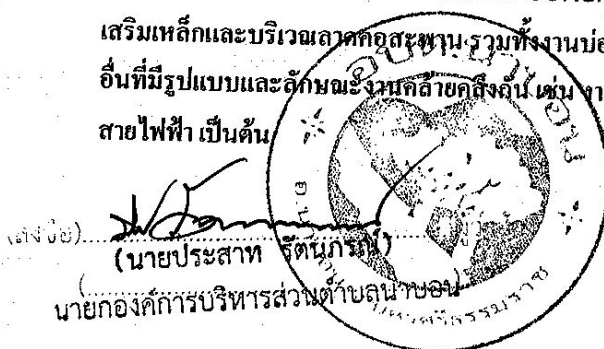 เสริมเหล็กและบริเวณลาดคอสะพาน รวมทั้งงานบ่อ
อื่นที่มีรูปแบบและลักษณะงานคล้ายคลึงกัน เช่น งา
สายไฟฟ้า เป็นต้น
(ลงชื่อ)
(นายประสาท รัตนภรณ์)
นายกองค์การบริหารส่วนตำบลนาบอน